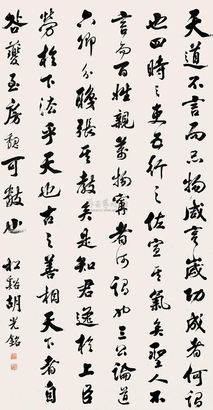 天道不言而品物咸亨歲功成者何謂
也四時之吏五行之佐宣其氣矣聖人不
言而百姓親萬物寧者何謂也三公論道
六卿分職張其教矣是知君逸於上臣
勞於下法乎天也古之善相天下者自
咎夔至房魏可數也 松谿胡光銘